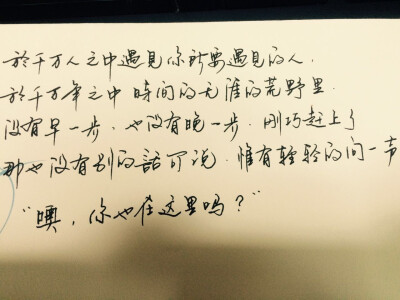 於千万人之中遇見你所要遇見的人.
於千万年之中 時间的无涯的荒野里.
没有早一步,也没有晚一步,刚巧赶上了
那也没有别的話可说,惟有轻轻的问一节
“噢,你也在这里吗?”